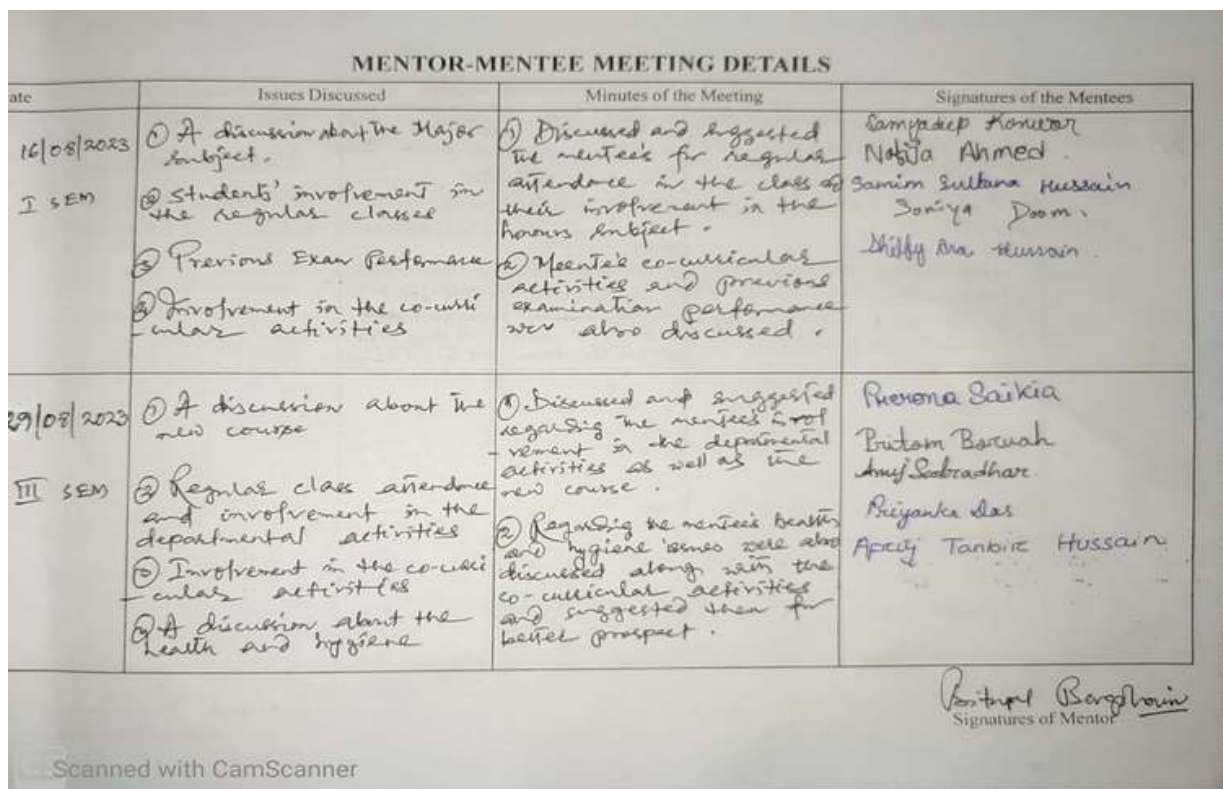 MENTOR-MENTEE MEETING DETAILS
ate
Issues Discussed
Minutes of the Meeting
Signatures of the Mentees
16/08/2023
I SEM
① A discussion about the Major
subject.
② Students' involvement in
the regular classes
③ Previous Exam Performance
④ Involvement in the co-curri
-cular activities
① Discussed and suggested
the mentee's for regular
attendance in the class as
their involvement in the
honours subject.
② Meentee's co-curricular
activities and previous
examination performance
were also discussed.
Samyadeep Konwar
Ahmed
Samim Sultana Hussain
Soniya Doom.
Ara Hussain.
29/08/2023
III SEM
① A discussion about the
new course
② Regular class attendance
and involvement in the
departmental activities
③ Involvement in the co-curri
-cular activities
④ A discussion about the
health and hygiene
① Discussed and suggested
regarding the mentee's invol
-vement in the departmental
activities as well as the
new course.
② Regarding the mentee's health
and hygiene issues were also
discussed along with the
co-curricular activities
and suggested them for
better prospect.
Prerona Saikia
Pritom Boruah
Priyanka Das
Tanbir Hussain
Borgohain
Signatures of Mentor
Scanned with CamScanner